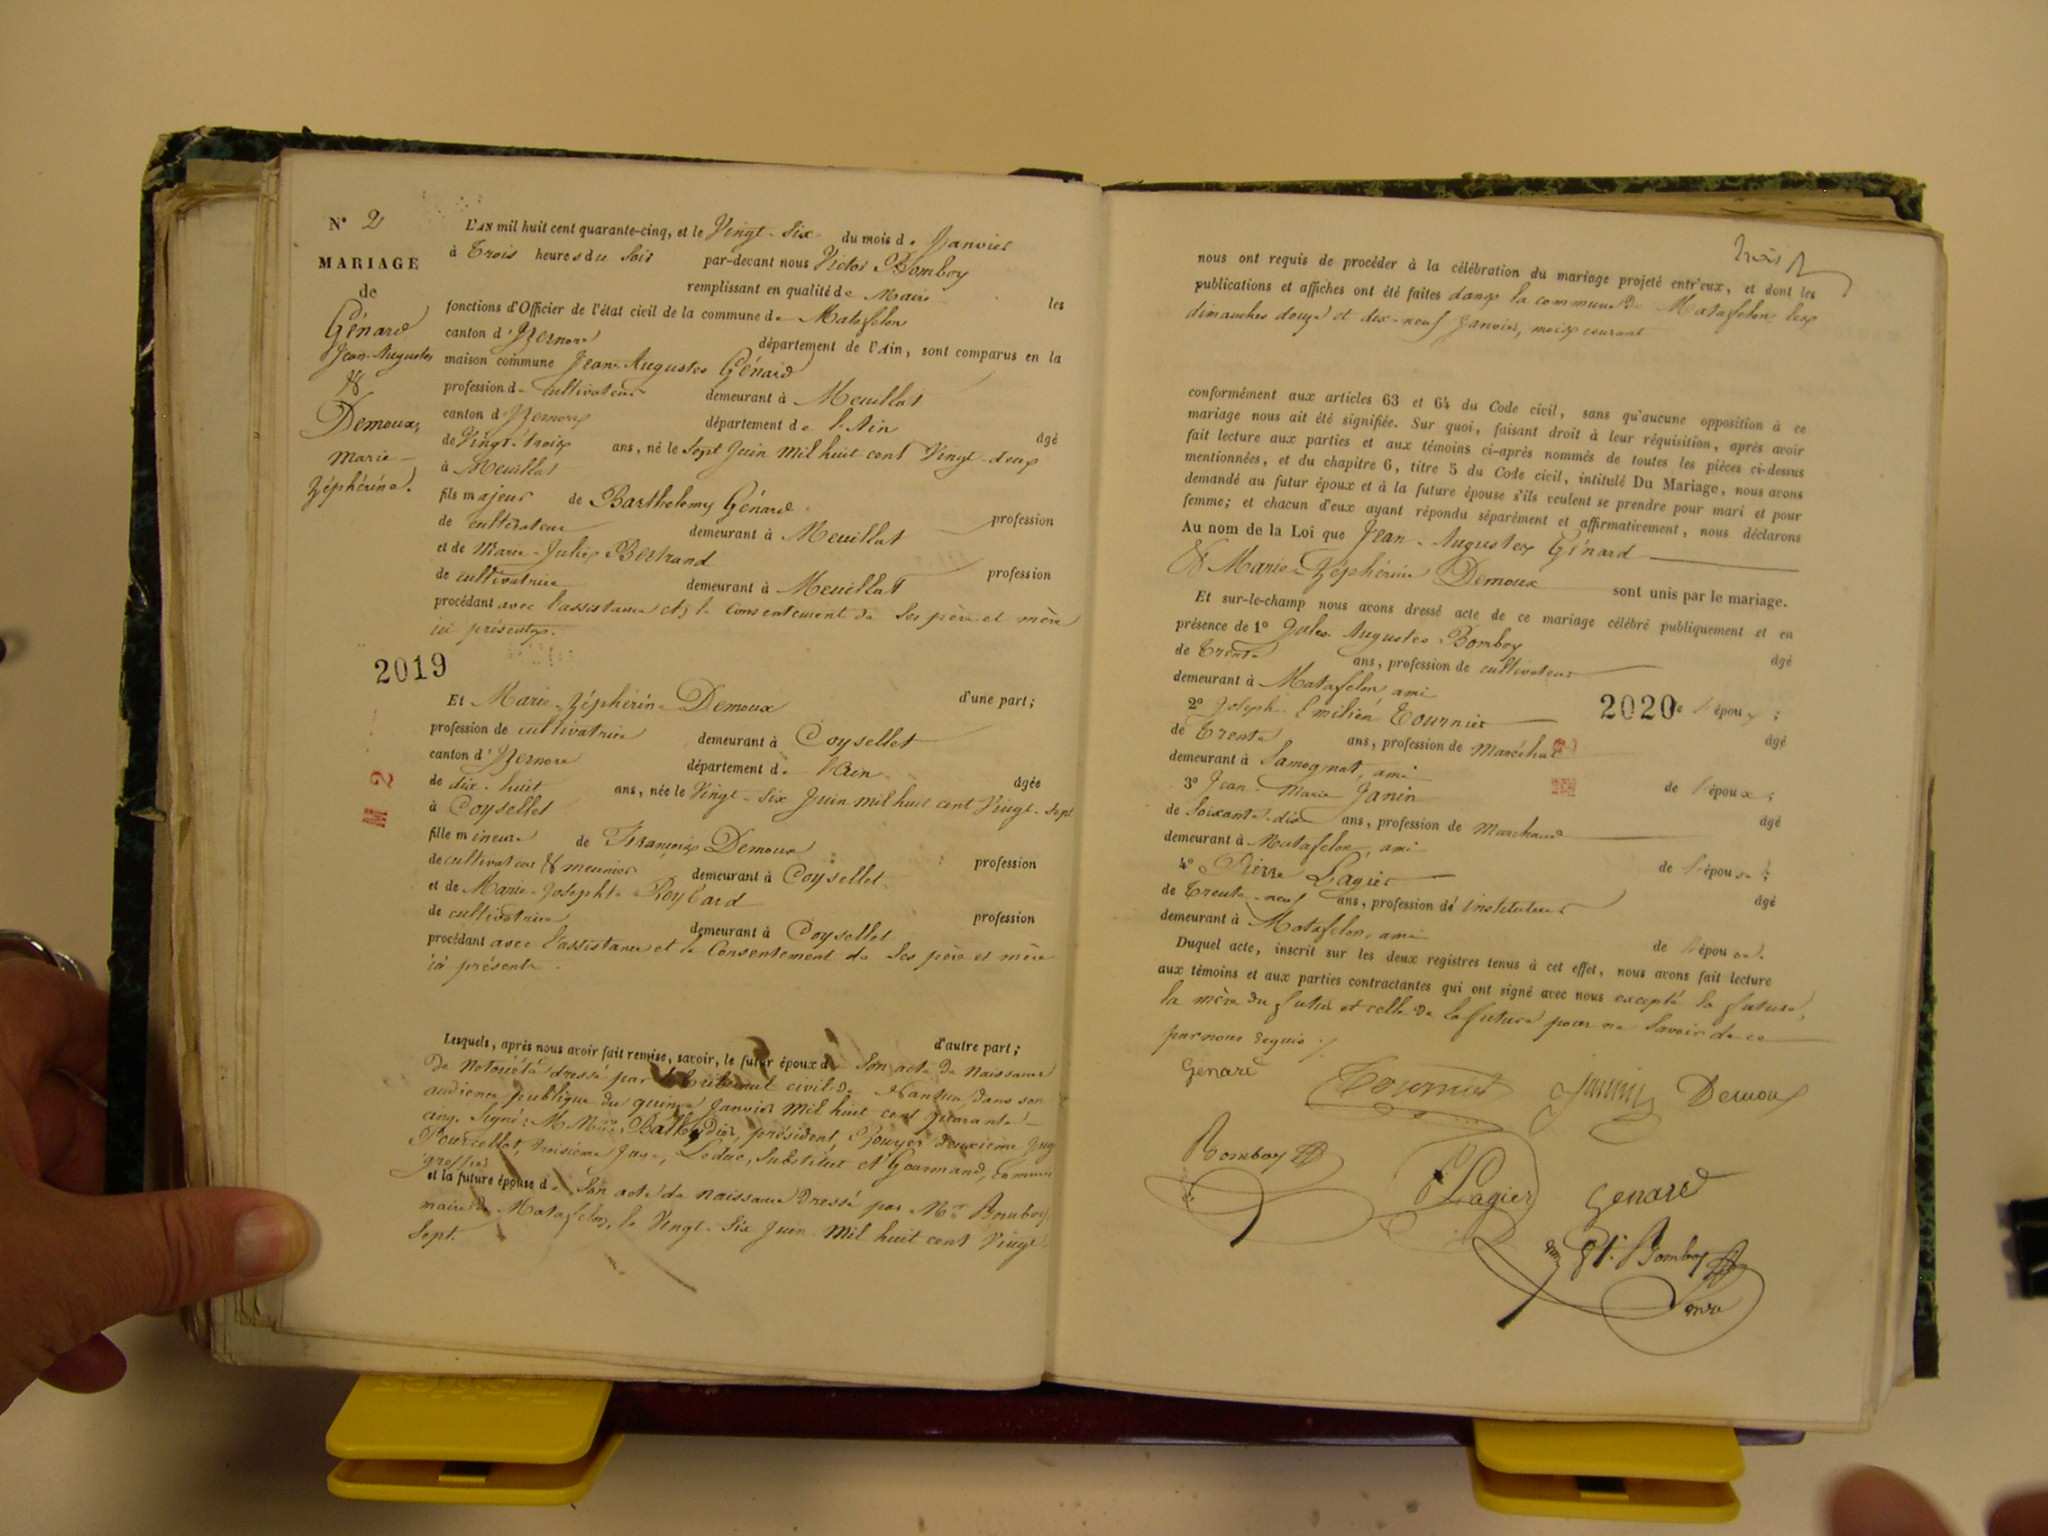 N° 2
MARIAGE
de
Génard
Jean-Auguste
&
Demoux,
Marie-
Zéphérine.
L'AN mil huit cent quarante-cinq, et le Vingt-Six du mois de Janvier
à Trois heures du Soir par-devant nous Victor Bomboy
remplissant en qualité de Maire les
fonctions d'Officier de l'état civil de la commune de Matafelon
canton d'Izernore département de l'Ain, sont comparus en la
maison commune Jean-Auguste Génard
profession de cultivateur demeurant à Meuillat
canton d'Izernore département de l'Ain âgé
de Vingt-trois ans, né le Sept Juin mil huit cent Vingt-deux
à Meuillat
fils majeur de Barthelemy Génard profession
de cultivateur demeurant à Meuillat
et de Marie-Julie Bertrand profession
de cultivatrice demeurant à Meuillat
procédant avec l'assistance et le Consentement de Ses père et mère
ici présents.
2019
d'une part;
Et Marie-Zéphérine Demoux
profession de cultivatrice demeurant à Coysellet
canton d'Izernore département de l'Ain âgée
de dix-huit ans, née le Vingt-Six Juin mil huit cent Vingt-Sept
à Coysellet
M 2
fille mineure de François Demoux profession
de cultivateur & meunier demeurant à Coysellet
et de Marie-Josephte Roybard profession
de cultivatrice demeurant à Coysellet
procédant avec l'assistance et le Consentement de Ses père et mère
ici présents.
d'autre part;
Lesquels, après nous avoir fait remise, savoir, le futur époux de Son acte de Naissance
De Notoriété dressé par le Tribunal civil de Nantua dans son
audience publique du quinze Janvier mil huit cent quarante-
cinq. Signé: M. président, Pouyer deuxième Juge
Pourcellet, troisième Juge, Leduc, Substitut et Gourmand, Commis
greffier
et la future épouse de Son acte de naissance Dressé par Mr. Bomboy,
maire de Matafelon, le Vingt-Six Juin Mil huit cent Vingt-
Sept.
trois
nous ont requis de procéder à la célébration du mariage projeté entr'eux, et dont les
publications et affiches ont été faites dans la commune de Matafelon les
dimanches douze et dix-neuf Janvier, mois courant
conformément aux articles 63 et 64 du Code civil, sans qu'aucune opposition à ce
mariage nous ait été signifiée. Sur quoi, faisant droit à leur réquisition, après avoir
fait lecture aux parties et aux témoins ci-après nommés de toutes les pièces ci-dessus
mentionnées, et du chapitre 6, titre 5 du Code civil, intitulé Du Mariage, nous avons
demandé au futur époux et à la future épouse s'ils veulent se prendre pour mari et pour
femme; et chacun d'eux ayant répondu séparément et affirmativement, nous déclarons
Au nom de la Loi que Jean-Auguste Génard
& Marie-Zéphérine Demoux sont unis par le mariage.
Et sur-le-champ nous avons dressé acte de ce mariage célébré publiquement et en
présence de 1° Jules Auguste Bomboy âgé
de Trente ans, profession de cultivateur
demeurant à Matafelon, ami de l'époux;
2020
2° Joseph Emilien Tournier âgé
de Trente ans, profession de Maréchal
demeurant à Samognat, ami de l'époux;
3° Jean-Marie Janin âgé
de Soixante-dix ans, profession de Marchand
demeurant à Matafelon, ami de l'épouse;
4° Pierre Lagier âgé
de Trente-neuf ans, profession de Instituteur
demeurant à Matafelon, ami de l'épouse.
Duquel acte, inscrit sur les deux registres tenus à cet effet, nous avons fait lecture
aux témoins et aux parties contractantes qui ont signé avec nous excepté la future,
la mère du futur et celle de la future pour ne Savoir de ce
par nous requis ./.
Genard Tournier Janin Demoux
Bomboy P. Lagier Genard
Vor. Bomboy
maire